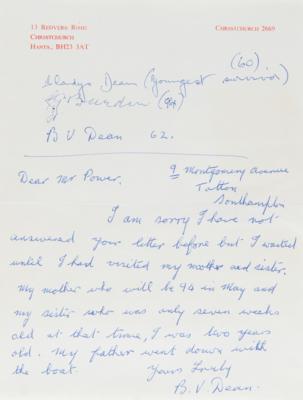 13 REDVERS ROAD
CHRISTCHURCH
HANTS, BH23 3AT
CHRISTCHURCH 2669
(60)
Gladys Dean (Youngest survivor)
(94)
B V Dean 62.
9 Montgomery Avenue
Totton
Southampton
Dear Mr Power.
I am sorry I have not
answered your letter before but I waited
until I had visited my mother and sister.
My mother who will be 94 in May and
my sister who was only seven weeks
old at that time, I was two years
old. My father went down with
the boat.
Yours
B. V. Dean.